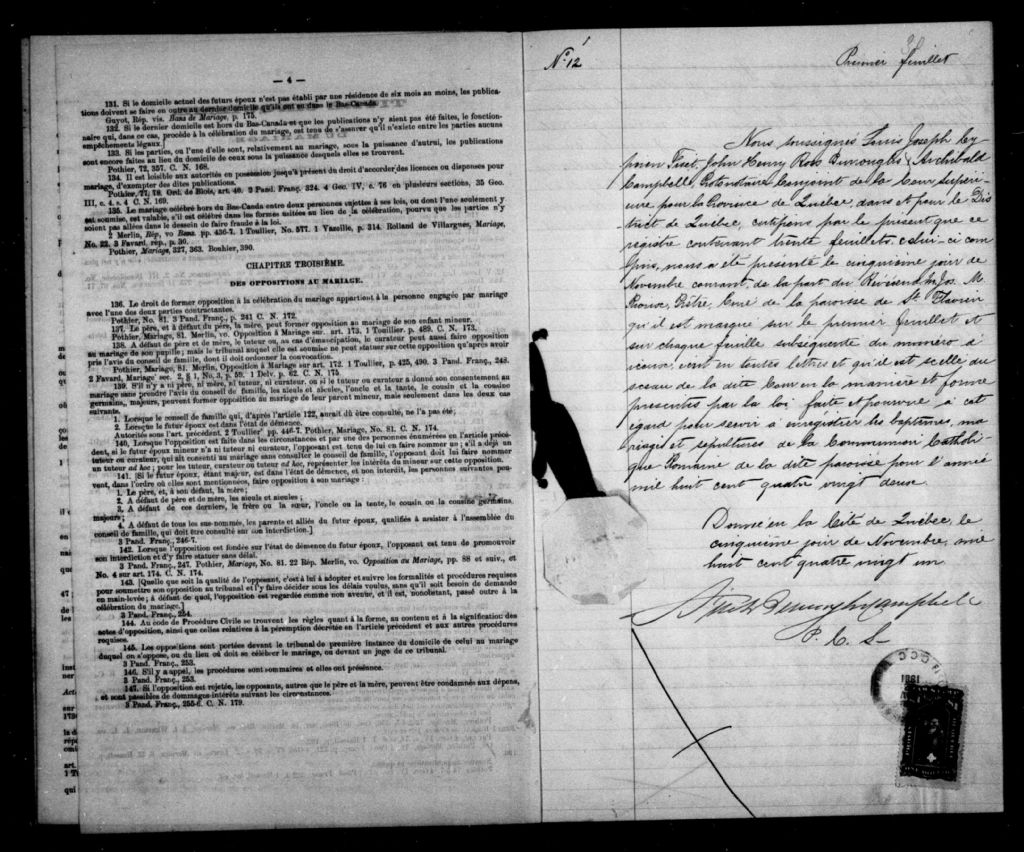 — 4 —
131. Si le domicile actuel des futurs époux n'est pas établi par une résidence de six mois au moins, les publica-
tions doivent se faire en outre au dernier domicile qu'ils ont eu dans le Bas-Canada.
Guyot, Rép. vis. Bans de Mariage, p. 175.
132. Si le dernier domicile est hors du Bas-Canada et que les publications n'y aient pas été faites, le fonction-
naire qui, dans ce cas, procède à la célébration du mariage, est tenu de s'assurer qu'il n'existe entre les parties aucuns
empêchements légaux.]
133. Si les parties, ou l'une d'elle sont, relativement au mariage, sous la puissance d'autrui, les publications
sont encore faites au lieu du domicile de ceux sous la puissance desquels elles se trouvent.
Pothier, 72, 357. C. N. 168.
134. Il est loisible aux autorités en possession jusqu'à présent du droit d'accorder des licences ou dispenses pour
mariage, d'exempter des dites publications.
Pothier, 77, 78. Ord. de Blois, art. 40. 2 Pand Franç. 324. 4 Geo. IV, c. 76 en plusieurs sections, 35 Geo.
III, c. 4 s. 4 C. N. 169.
135. Le mariage célébré hors du Bas-Canada entre deux personnes sujettes à ses lois, ou dont l'une seulement y
est soumise, est valable, s'il est célébré dans les formes usitées au lieu de la célébration, pourvu que les parties n'y
soient pas allées dans le dessein de faire fraude à la loi.
2 Merlin, Rép, vo Bans. pp. 436-7. 1 Toullier, No. 577. 1 Vazeille, p. 314. Rolland de Villargues, Mariage,
No. 22. 3 Favard, rép., p. 30.
Pothier, Mariage, 327, 363. Bouhier, 390.
CHAPITRE TROISIÈME.
DES OPPOSITIONS AU MARIAGE.
136. Le droit de former opposition à la célébration du mariage appartient à la personne engagée par mariage
avec l'une des deux parties contractantes.
Pothier, No. 81. 3 Pand. Franç., p. 241 C. N. 172.
137. Le père, et à défaut du père, la mère, peut former opposition au mariage de son enfant mineur.
Pothier, Mariage, 81. Merlin, vo. Opposition à Mariage sur. art. 173. 1 Toullier. p. 489. C. N. 173.
138. A défaut de père et de mère, le tuteur ou, au cas d'émancipation, le curateur peut aussi faire opposition
au mariage de son pupille; mais le tribunal auquel elle est soumise ne peut statuer sur cette opposition qu'après avoir
pris l'avis du conseil de famille, dont il doit ordonner la convocation.
Pothier, Mariage, 81. Merlin, Opposition à Mariage sur art. 172. 1 Toullier, p. 425, 490. 3 Pand. Franç., 248.
2 Favard, Mariage, sec. 2, § 1, No. 3, p. 59. 1 Delv. p. 62. C. N. 175.
139. S'il n'y a ni père, ni mère, ni tuteur, ni curateur, ou si le tuteur ou curateur a donné son consentement au
mariage sans prendre l'avis du conseil de famille, les aïeuls et aïeules, l'oncle et la tante, le cousin et la cousine
germains, majeurs, peuvent former opposition au mariage de leur parent mineur, mais seulement dans les deux cas
suivants.
1. Lorsque le conseil de famille qui, d'après l'article 122, aurait dû être consulté, ne l'a pas été;
2. Lorsque le futur époux est dans l'état de démence.
Autorités sous l'art. précédent. 2 Toullier pp. 446-7. Pothier, Mariage, No. 81. C. N. 174.
140. Lorsque l'opposition est faite dans les circonstances et par une des personnes énumérées en l'article précé-
dent, si le futur époux mineur n'a ni tuteur ni curateur, l'opposant est tenu de lui en faire nommer un; s'il a déjà un
tuteur ou curateur, qui ait consenti au mariage sans consulter le conseil de famille, l'opposant doit lui faire nommer
un tuteur ad hoc; pour les tuteur, curateur ou tuteur ad hoc, représenter les intérêts du mineur sur cette opposition.
141. [Si le futur époux, étant majeur, est dans l'état de démence, et non interdit, les personnes suivantes peu-
vent, dans l'ordre où elles sont mentionnées, faire opposition à son mariage:
1. Le père, et, à son défaut, la mère;
2. A défaut de père et de mère, les aïeuls et aïeules;
3. A défaut de ces derniers, le frère ou la sœur, l'oncle ou la tente, le cousin ou la cousine germains,
majeurs;
4. A défaut de tous les sus-nommés, les parents et alliés du futur époux, qualifiés à assister à l'assemblée du
conseil de famille, qui doit être consulté sur son interdiction.]
3 Pand. Franç., 246-7.
142. Lorsque l'opposition est fondée sur l'état de démence du futur époux, l'opposant est tenu de promouvoir
son interdiction et d'y faire statuer sans délai.
3 Pand. Franç., 247. Pothier, Mariage, No. 81. 22 Rép. Merlin, vo. Opposition au Mariage, pp. 88 et suiv., et
No. 4 sur art. 174. C. N. 174.
143. [Quelle que soit la qualité de l'opposant, c'est à lui à adopter et suivre les formalités et procédures requises
pour soumettre son opposition au tribunal et l'y faire décider sous les délais voulus, sans qu'il soit besoin de demande
en main-levée; à défaut de quoi, l'opposition est regardée comme non avenue, et il est, nonobstant, passé outre à la
célébration du mariage.]
3 Pand. Franç., 254.
144. Au code de Procédure Civile se trouvent les règles quant à la forme, au contenu et à la signification des
actes d'opposition, ainsi que celles relatives à la péremption décrétée en l'article précédent et aux autres procédures
requises.
145. Les oppositions sont portées devant le tribunal de première instance du domicile de celui au mariage
duquel on s'oppose, ou du lieu où doit se célébrer le mariage, ou devant un juge de ce tribunal.
3 Pand. Franç., 253.
146. S'il y a appel, les procédures sont sommaires et elles ont préséance.
3 Pand. Franç., 253.
147. Si l'opposition est rejetée, les opposants, autres que le père et la mère, peuvent être condamnés aux dépens,
et sont passibles de dommages-intérêts suivant les circonstances.
3 Pand. Franç., 255-6. C. N. 179.
No. 12
Premier feuillet
Nous soussignés Louis Joseph Cy
prien Fiset, John Henry Ross Burroughs & Archibald
Campbell, Protonotaire Conjoint de la Cour Supéri-
eure pour la Province de Québec, dans et pour le Dis
trict de Québec, certifions par le présent que ce
registre contenant trente feuillets celui-ci com
pris, nous a été présenté le cinquième jour de
Novembre courant, de la part du Révérend M. Jos. M.
Prêtre, Curé de la paroisse de St. Flavien
qu'il est marqué sur le premier feuillet et
sur chaque feuille subséquente du numéro d'
iceux, écrit en toutes lettres et qu'il est scellé du
sceau de la dite Cour en la manière et forme
presentes par la loi faite et pourvue à cet
égard pour servir à enregistrer les baptêmes, ma
riages et sepultures de la Communion Catholi
que Romaine de la dite paroisse pour l'année
mil huit cent quatre vingt deux.
Donné en la Cité de Québec, le
cinquième jour de Novembre, mil
huit cent quatre vingt un
Fiset Burroughs Campbell
P. C. S.
1881